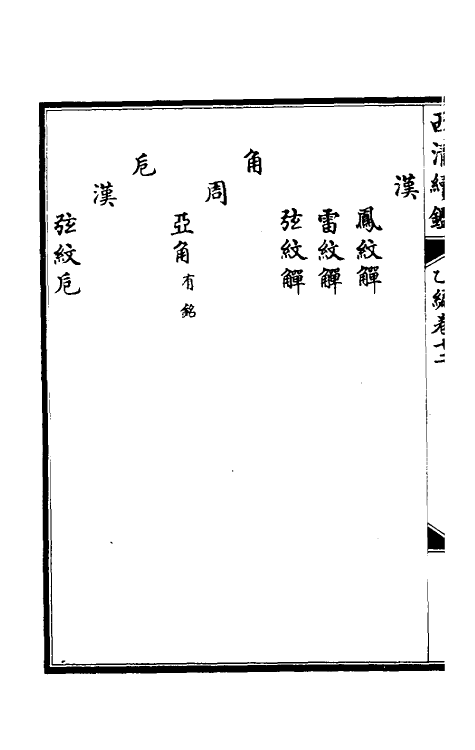 西清續鑑 乙編卷十二
漢
鳳紋觶
雷紋觶
弦紋觶
角
周
亞角 有銘
卮
漢
弦紋卮